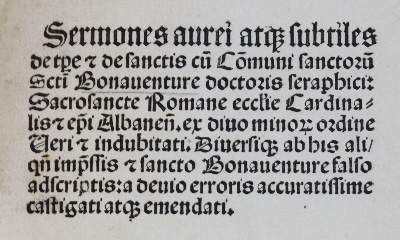 Sermones aurei atqꝫ subtiles
de tꝑe ⁊ de sanctis cū Cōmuni sanctorū
Scti Bonauenture doctoris seraphici:
Sacrosancte Romane ecclie Cardina⸗
lis ⁊ epi Albanen̄. ex diuo minoꝝ ordine
Ueri ⁊ indubitati. Diuersiqꝫ ab his ali/
qn̄ imp̄ssis ⁊ sancto Bonauenture falso
adscriptis: a deuio erroris accuratissime
castigati atqꝫ emendati.